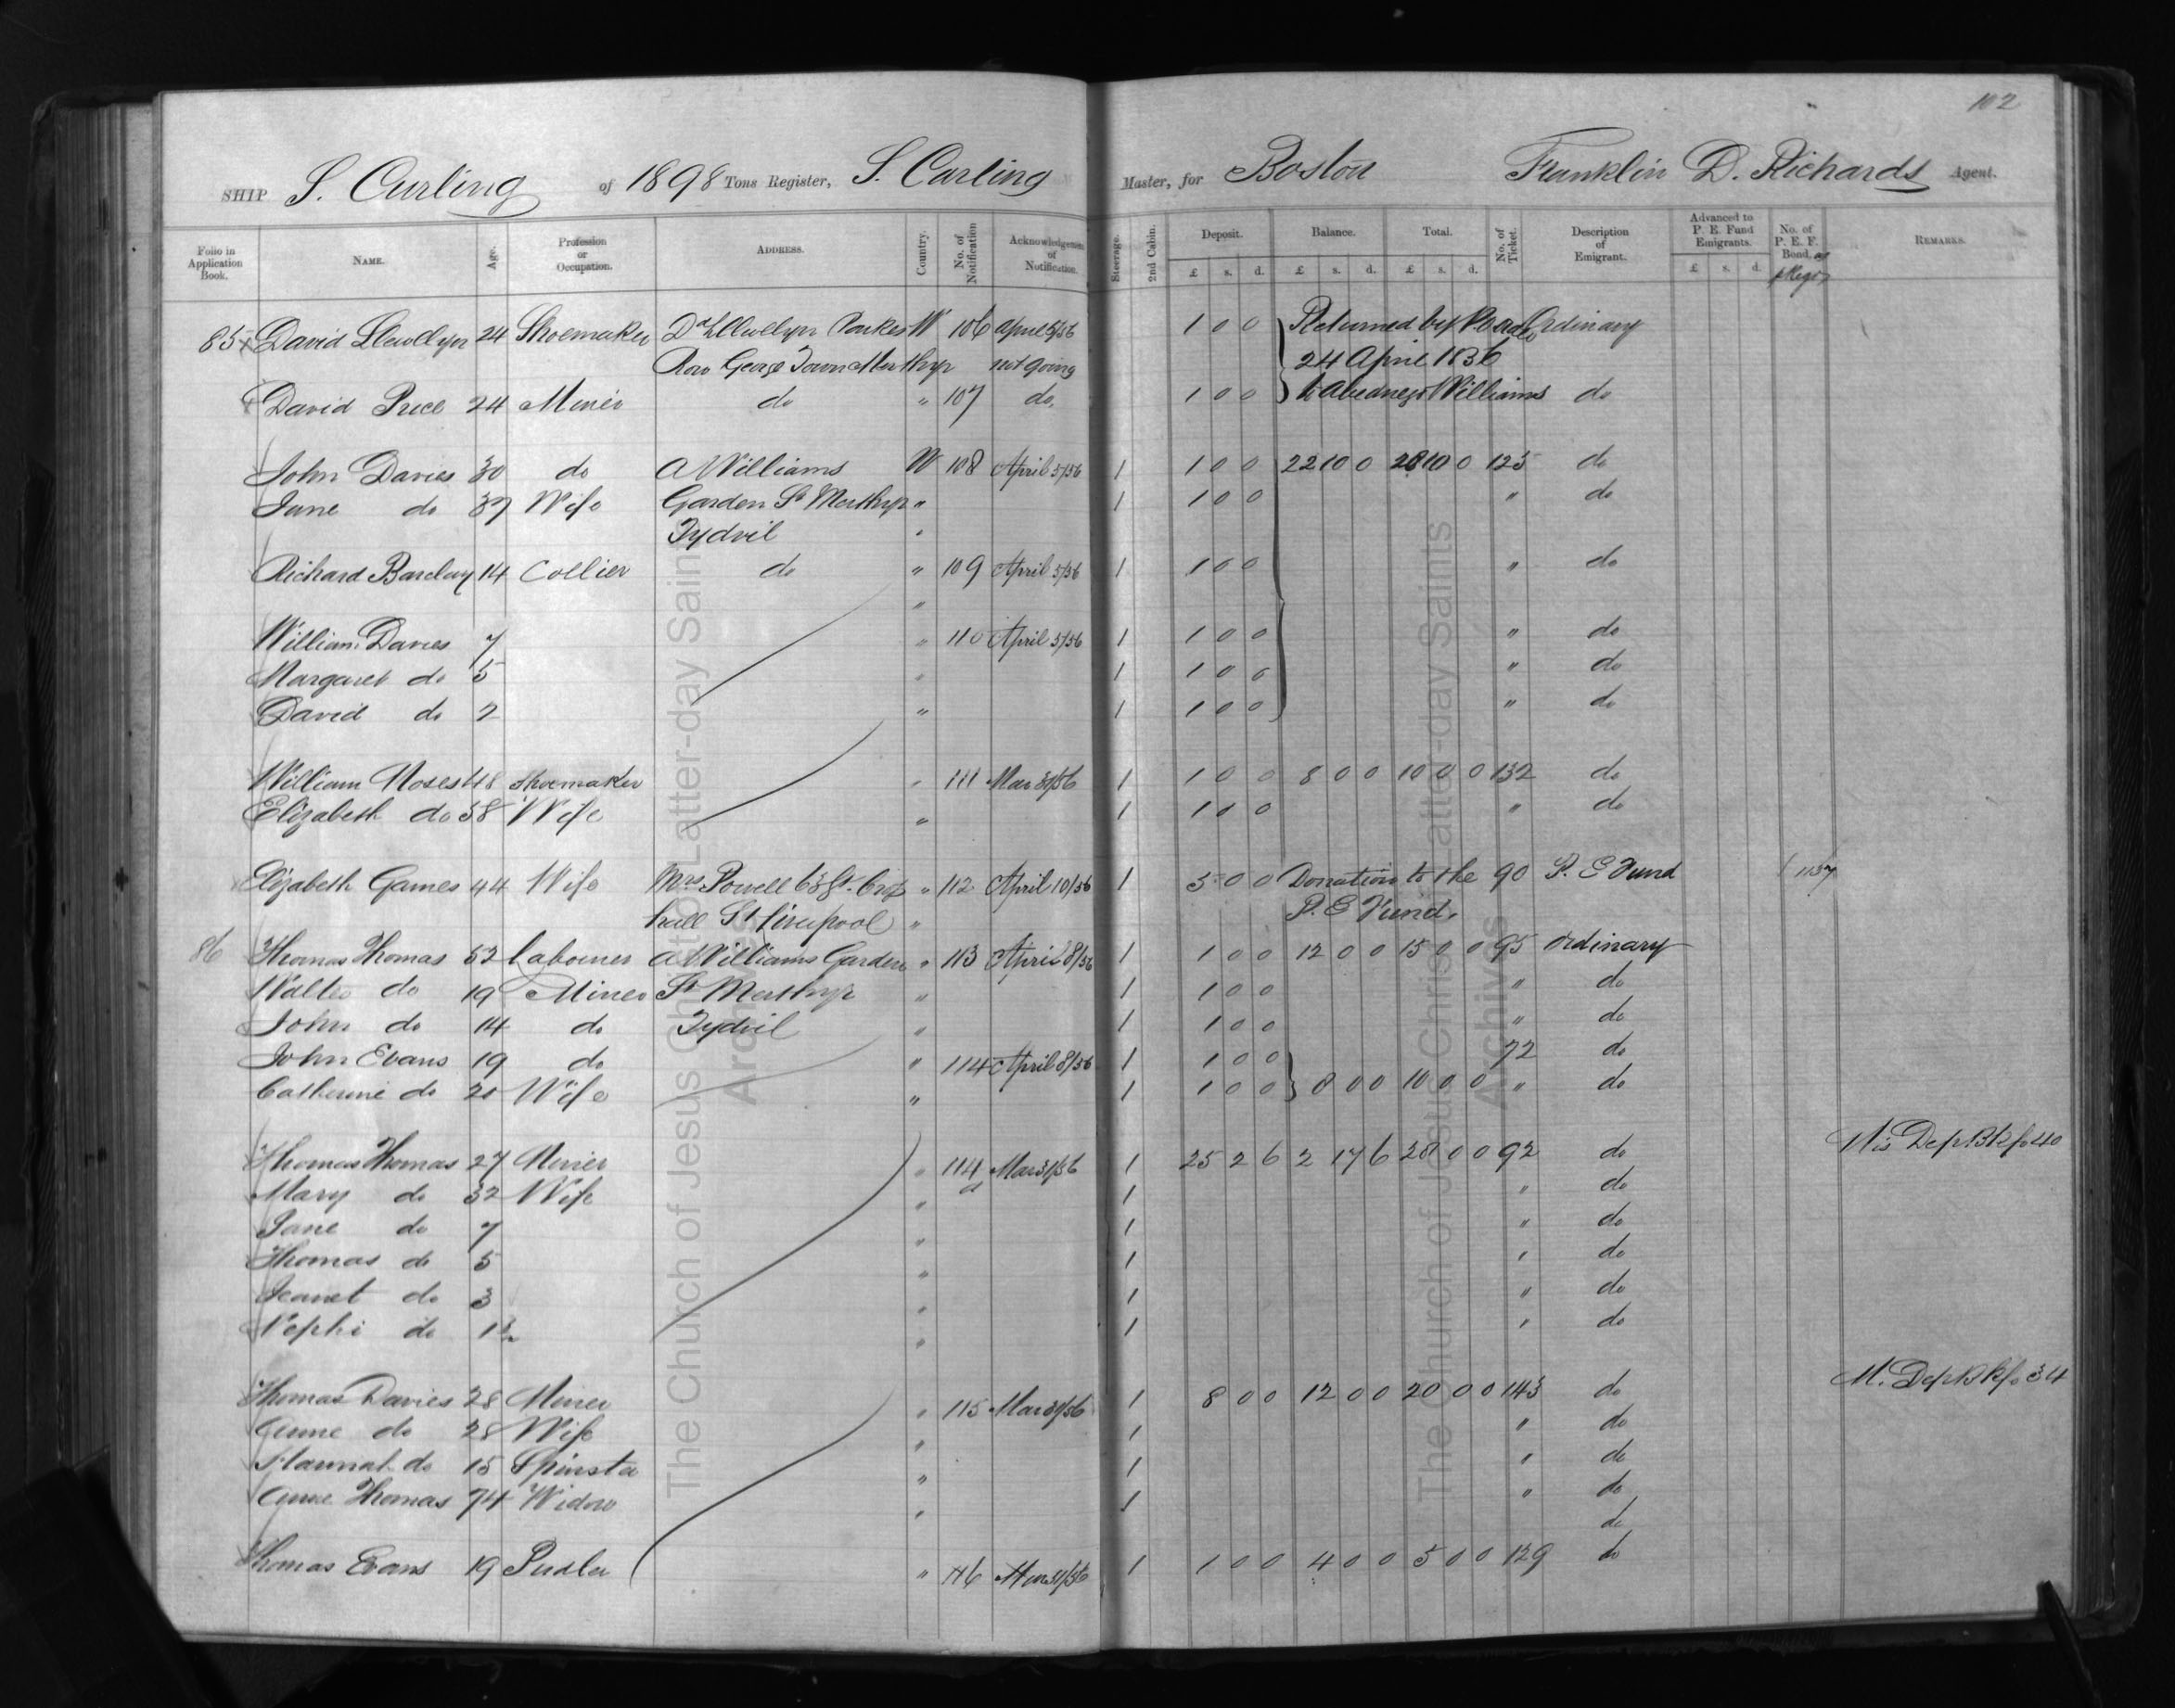 102
SHIP S. Curling of 1898 Tons Register, S. Curling Master, for Boston Franklin D. Richards Agent.
Folio in Application Book. NAME. Age. Profession or Occupation. ADDRESS. Country. No. of Notification Acknowledgement of Notification. Steerage. 2nd Cabin. Deposit. £ s. d. Balance. £ s. d. Total. £ s. d. No. of Ticket. Description of Emigrant. Advanced to P. E. Fund Emigrants. £ s. d. No. of P. E. F. Bond. REMARKS.
85 David Llewllyn 24 Shoemaker Dd Llewellyn Parkes W 106 April 5/56 1 0 0 Returned by P.O. Ordinary
Row George Town Merthyr not going 24 April 1856
David Price 24 Miner do " 107 do. 1 0 0 to Abednego Williams do
John Davies 30 do A Williams W 108 April 5/56 1 1 0 0 22 10 0 28 10 0 125 do
Jane do 37 Wife Garden St Merthyr " 1 1 0 0 " do
Tydvil "
Richard Barclay 14 Collier do " 109 April 5/56 1 1 0 0 " do
"
William Davies 7 " 110 April 5/56 1 1 0 0 " do
Margaret do 5 " 1 1 0 0 " do
David do 2 " 1 1 0 0 " do
William Moses 48 Shoemaker " 111 Mar 31/56 1 1 0 0 8 0 0 10 0 0 132 do
Elizabeth do 58 Wife " 1 1 0 0 " do
Elizabeth Games 44 Wife Mrs Powell 63 St. Crof " 112 April 10/56 1 5 0 0 Donation to the 90 P. E Fund 1137
hall St Liverpool " P. E Fund.
86 Thomas Thomas 52 Labourer A Williams Garden " 113 April 8/56 1 1 0 0 12 0 0 15 0 0 95 Ordinary
Walter do 19 Miner St Merthyr " 1 1 0 0 " do
John do 14 do Tydvil " 1 1 0 0 " do
John Evans 19 do " 114 April 8/56 1 1 0 0 72 do
Catherine do 20 Wife " 1 1 0 0 8 0 0 10 0 0 " do
Thomas Thomas 27 Miner " 114 a Mar 31/56 1 25 2 6 2 17 6 28 0 0 92 do Mis Dep. Bk fo 40
Mary do 32 Wife " 1 " do
Jane do 7 " 1 " do
Thomas do 5 " 1 " do
Jeanet do 3 " 1 " do
Nephi do 1½ " 1 " do
Thomas Davies 28 Miner " 115 Mar 31/56 1 8 0 0 12 0 0 20 0 0 143 do M. Dep Bk fo 34
Anne do 28 Wife " 1 " do
Hannah do 15 Spinster " 1 " do
Anne Thomas 74 Widow " 1 " do
do
Thomas Evans 19 Pudler " 116 Mar 31/56 1 1 0 0 4 0 0 5 0 0 129 do
The Church of Jesus Christ of Latter-day Saints
Archives
The Church of Jesus Christ of Latter-day Saints
Archives